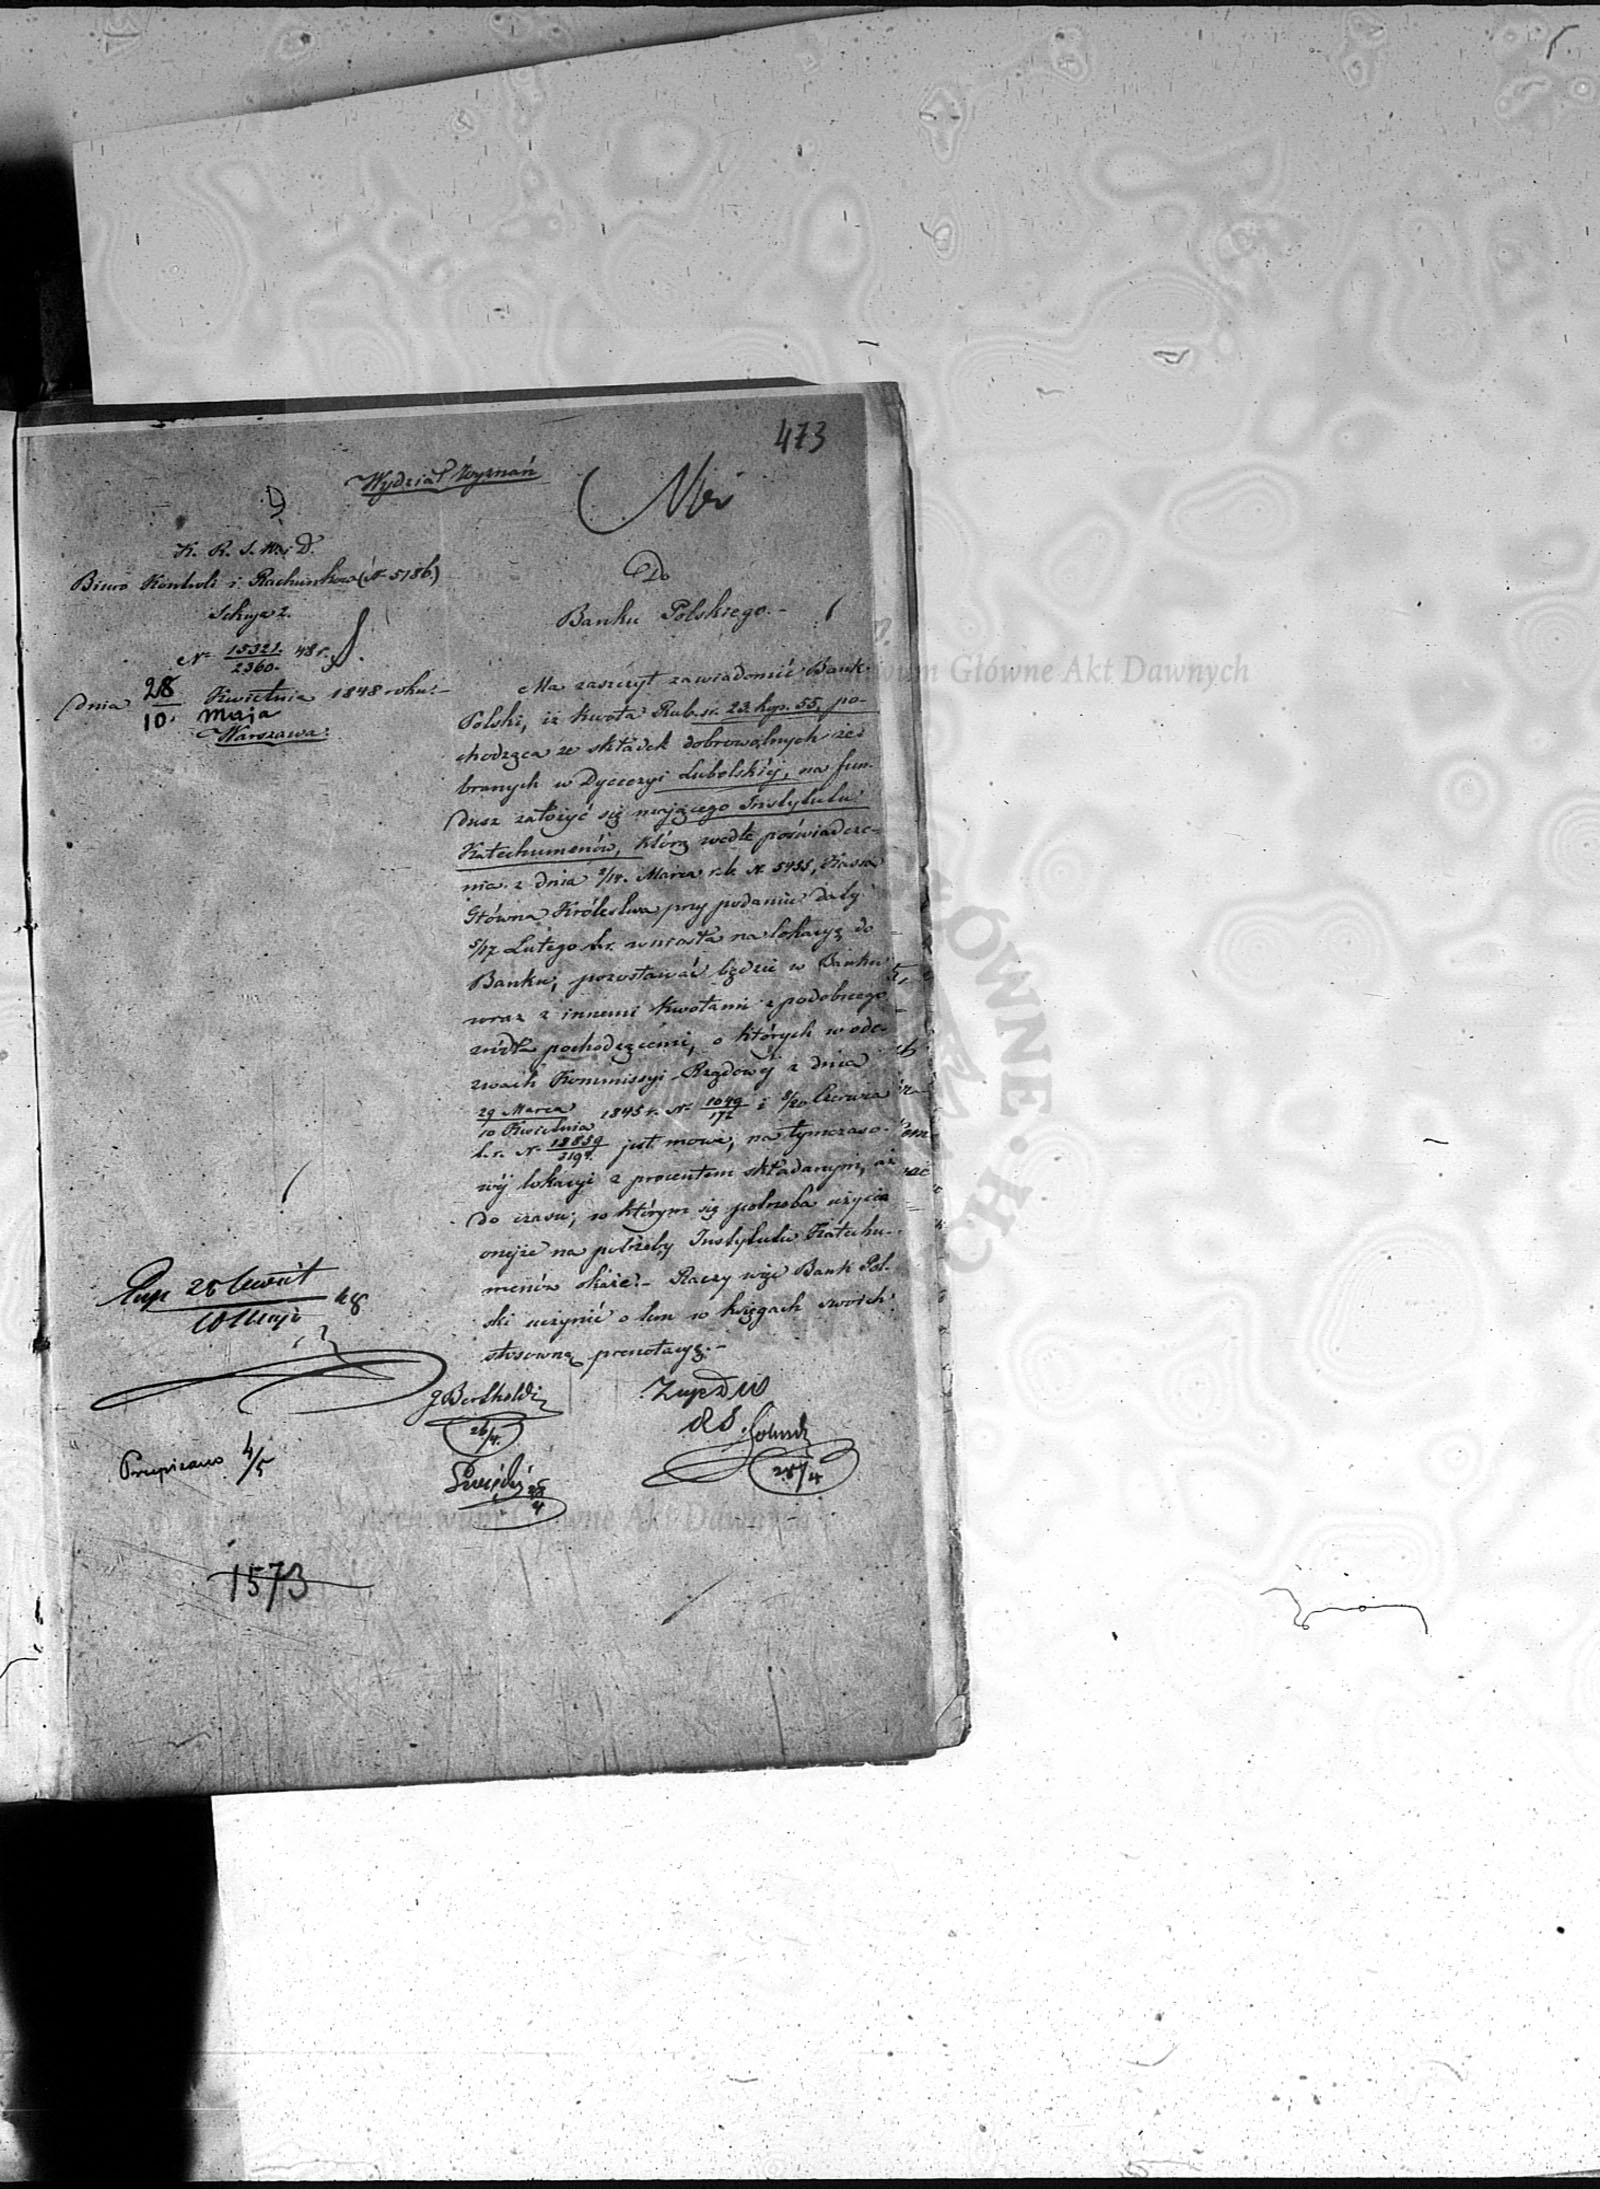 473
Wydział Wyznań
K. R. S. W. i D.
Biuro Kontroli i Rachunków (N. 5186.)
Sekcya 2.
No 15321./2360. 48 r.
dnia 28 Kwietnia/10. Maja 1848 roku.-
Warszawa.
Do
Banku Polskiego.-
Ma zaszczyt zawiadomić Bank
Polski, iż kwota Rub. sr. 23. kop. 55, po-
chodząca ze składek dobrowolnych ze-
branych w Dyecezyi Lubelskiéj, na fun-
dusz założyć się mającego Instytutu
Katechumenów, którą wedle poświadcze-
nia z dnia 2/14. Marca r. b. N. 5455, Kassa
Główna Królestwa przy podaniu daty
5/17 Lutego b.r. wniosła na lokacyę do
Banku; pozostawać będzie w Banku
wraz z innemi kwotami z podobnego
źródła pochodzącemi, o których w ode-
zwach Kommissyi Rządowéj z dnia
29 Marca/10 Kwietnia 1845 r. No 1049/172 i 8/20 Czerwca
t. r. No jest mowa, na tymczaso-
wéj lokacyi z procentem składanym, aż
do czasu, w którym się potrzeba użycia
onejże na potrzeby Instytutu Katechu-
menów okaże.- Raczy więc Bank Pol-
ski uczynić o tem w księgach swoich
stosowną prenotacyę.-
28 Kwiet/10 Maja 48
J Bertholdi
26/4.
28/4
25/4
Przepisano 4/5
1573
Archiwum Główne Akt Dawnych
Archiwum Główne Akt Dawnych